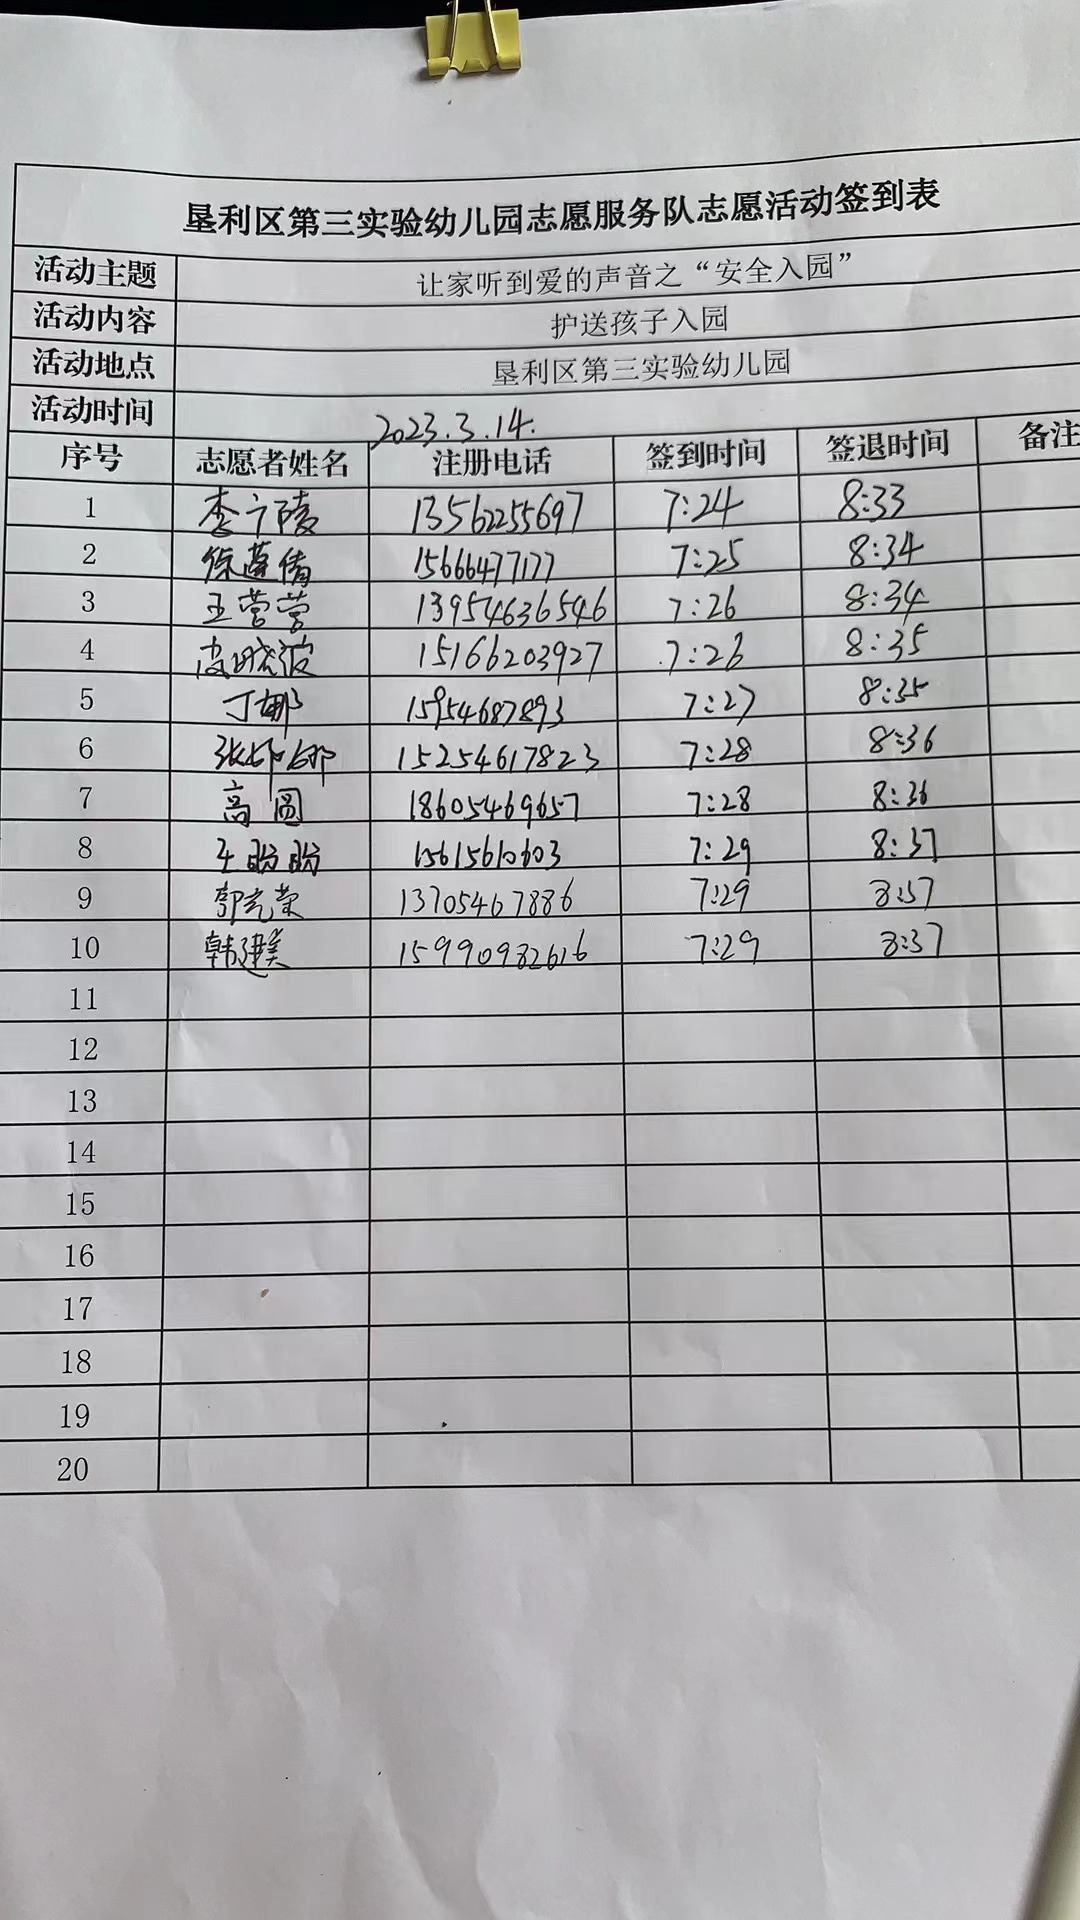 垦利区第三实验幼儿园志愿服务队志愿活动签到表
活动主题 让家听到爱的声音之“安全入园”
活动内容 护送孩子入园
活动地点 垦利区第三实验幼儿园
活动时间 2023.3.14.
序号 志愿者姓名 注册电话 签到时间 签退时间 备注
1 李广陵 13562255697 7:24 8:33
2 徐莲倩 15666477177 7:25 8:34
3 王营营 13954636546 7:26 8:34
4 15166203927 7:26 8:35
5 丁娜 15954687893 7:27 8:35
6 张娜娜 15254617823 7:28 8:36
7 高圆 18605469657 7:28 8:36
8 王盼盼 15615610603 7:29 8:37
9 郭光荣 13705467886 7:29 8:37
10 韩建美 159990982616 7:29 8:37
11
12
13
14
15
16
17
18
19
20